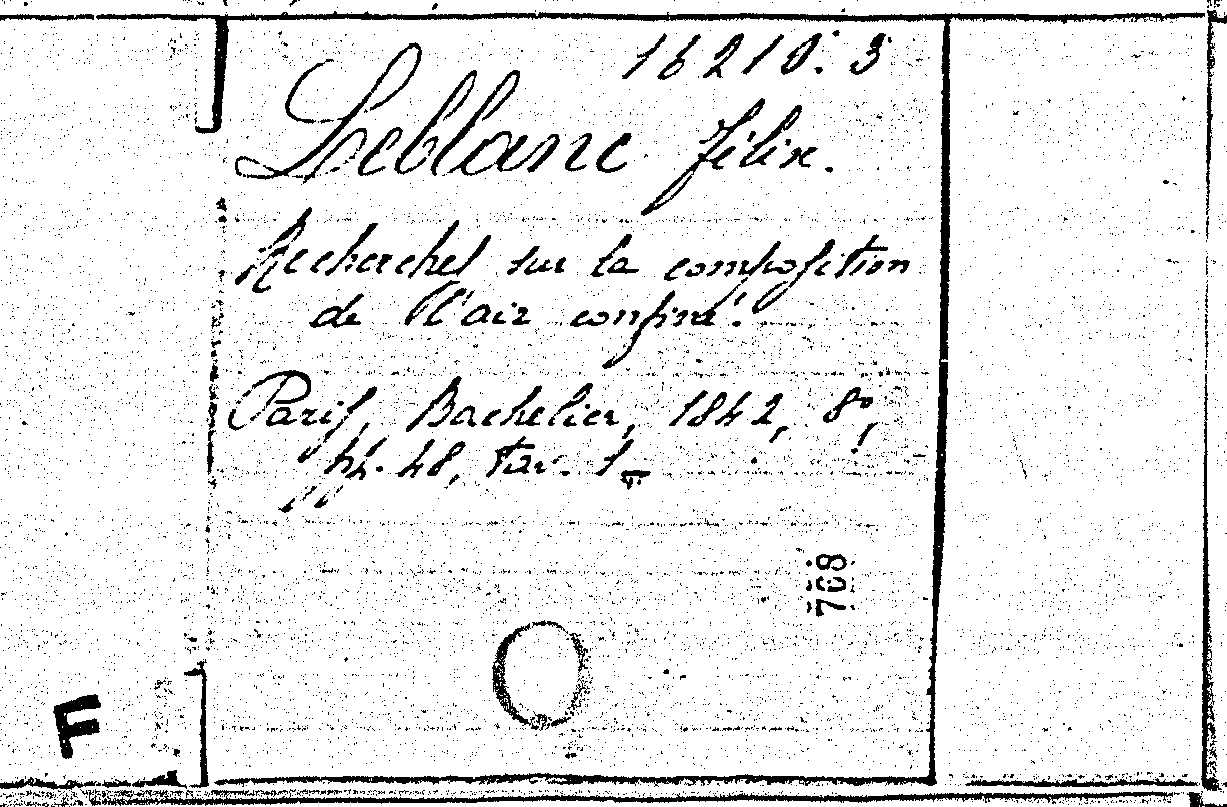 16210. 3
Leblanc Félix.
Recherches sur la composition
de l'air confiné.
Paris, Bachelier, 1842, 8°,
pp. 48, tav. 1
708
F